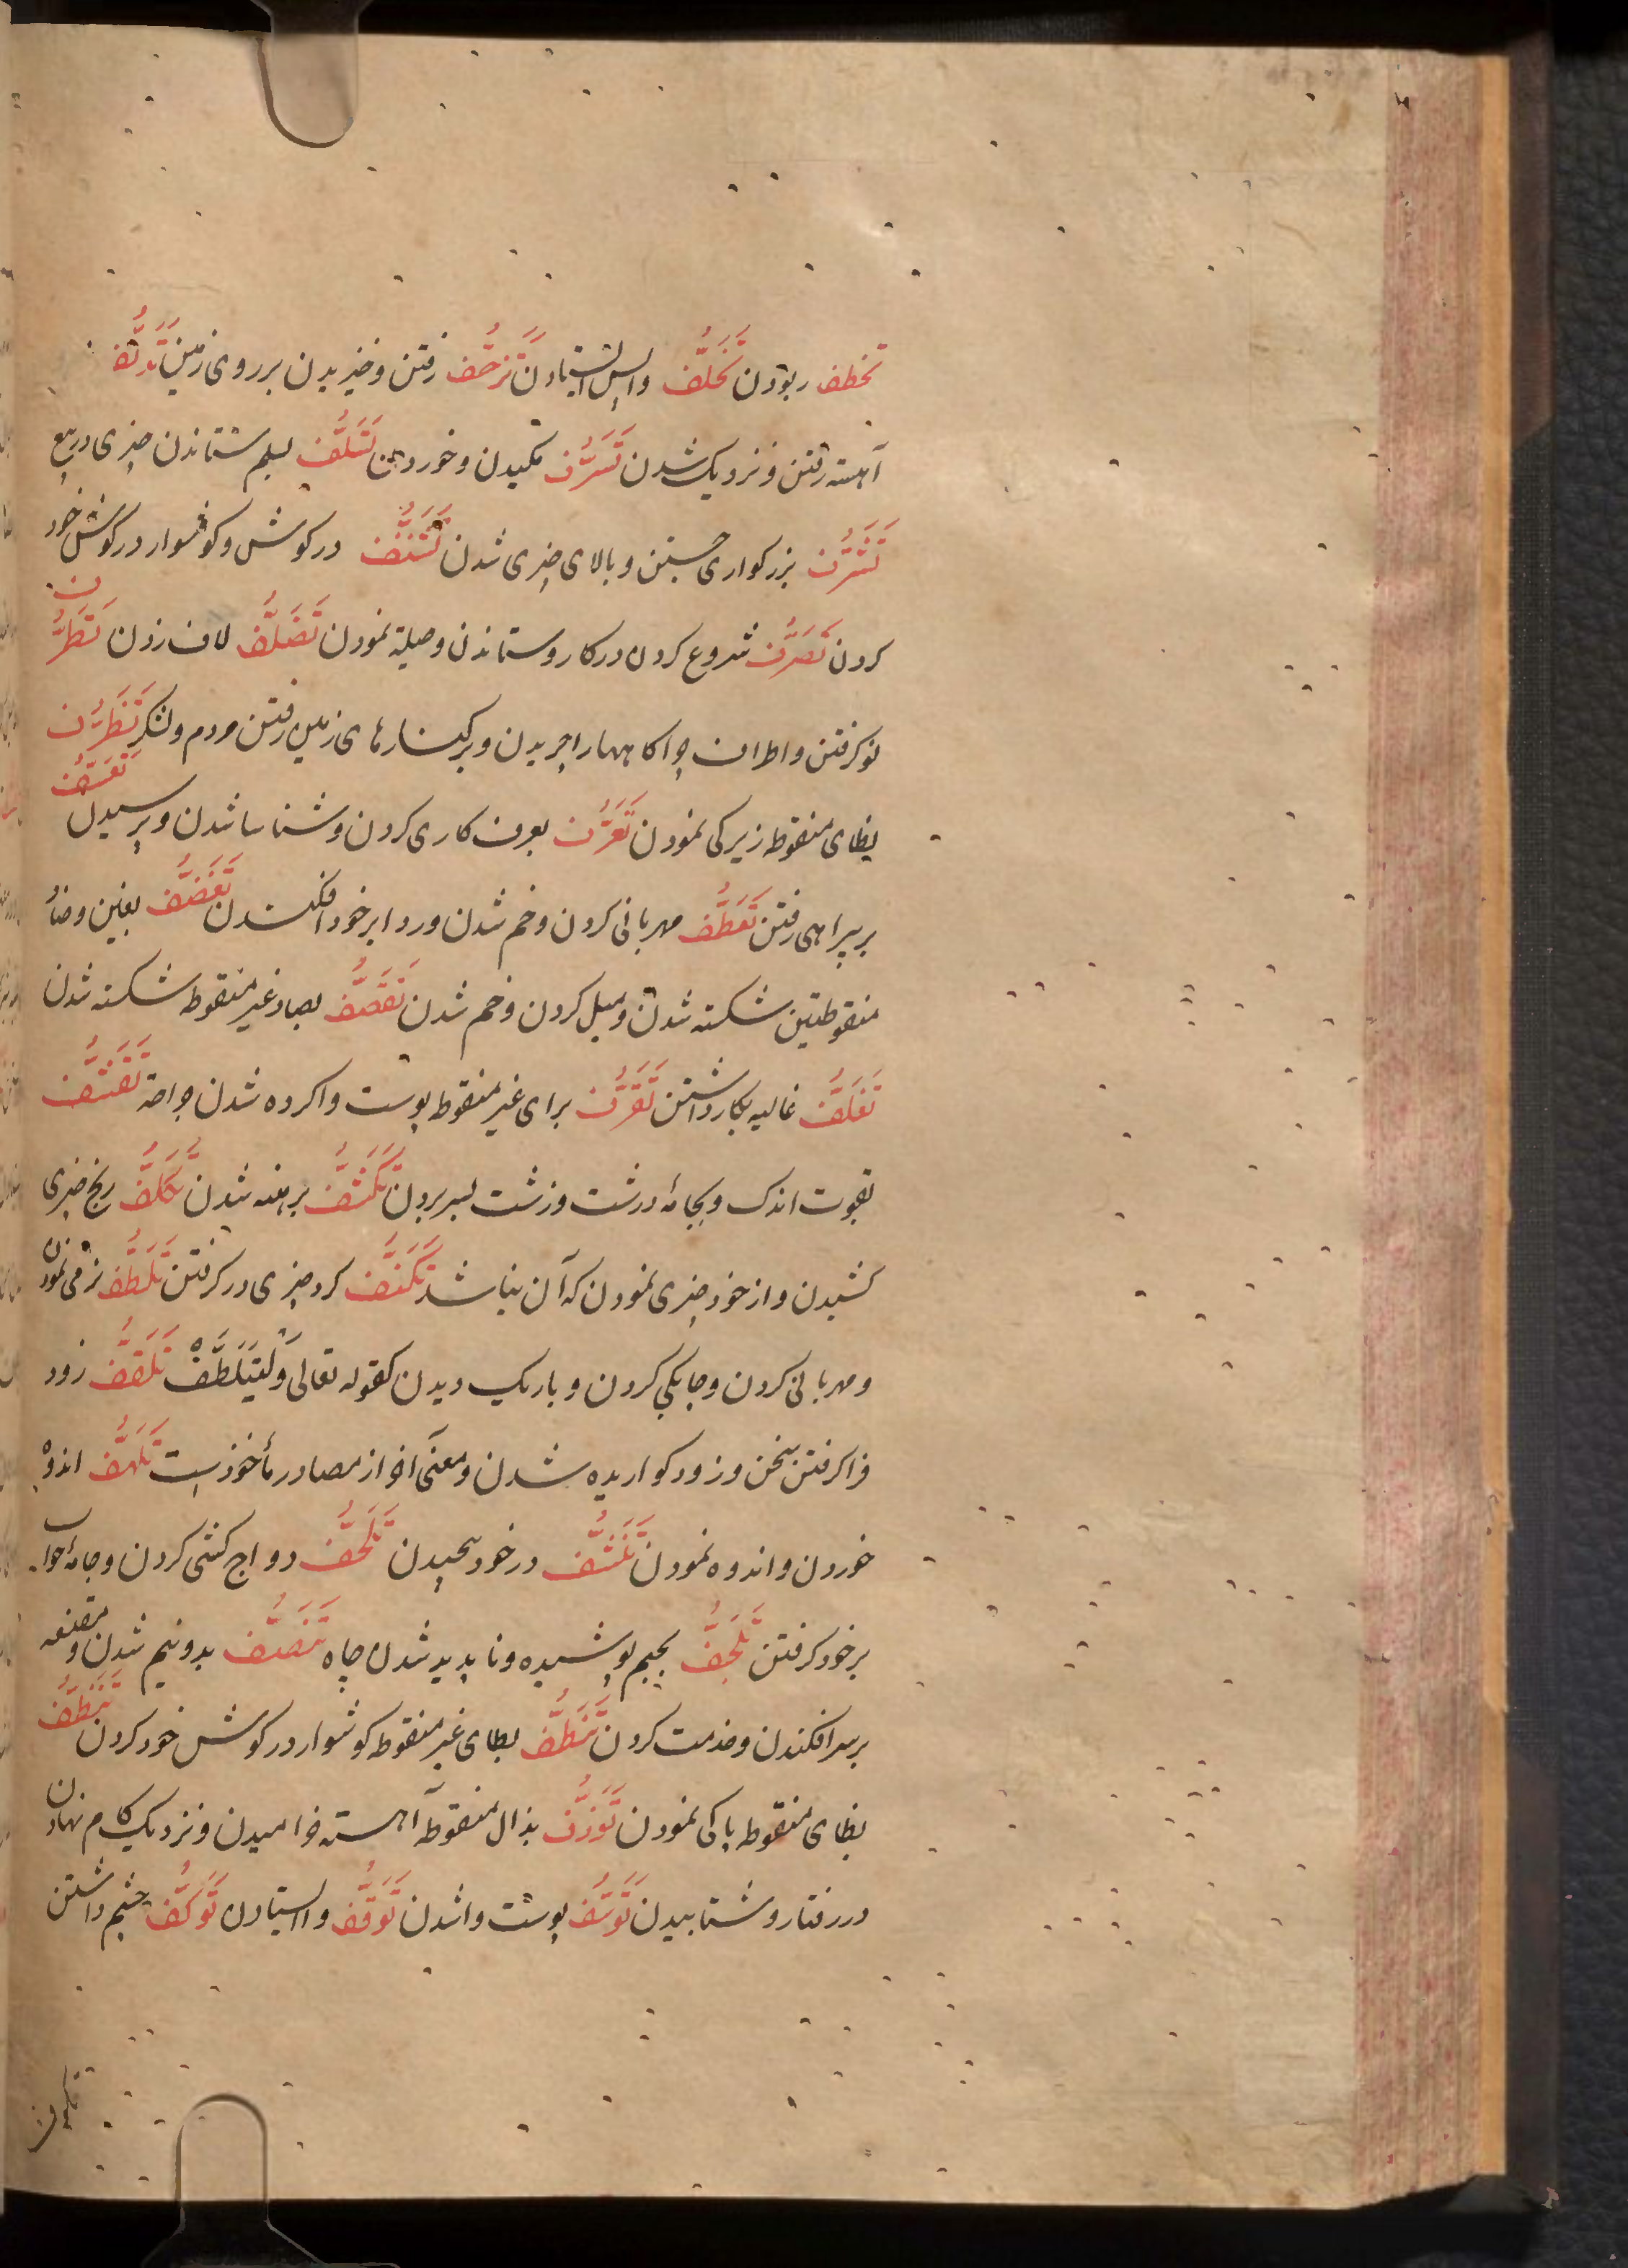 تخطف ربودن تَخَلُّف واپس ایستادن تَزَحُّف رفتن و خیزیدن بر روی زمین تَدَلُّف
آهسته رفتن و نزدیک شدن تَسَرُّف مکیدن و خوردن تَسَلُّف بسلم ستاندن چیزی در بیع
تَشَرُّف بزرکواری جستن و بالای چیزی شدن تَشَنُّف در کوش و کوشوار در کوش خود
کردن تَصَرُّف شروع کردن در کار و ستاندن و حیلة نمودن تَصَلُّف لاف زدن تَطَرُّف
نو کرفتن و اطراف چراکاهها را چریدن و بر کنارهای زمین رفتن مردم و لشکر تَظَرُّف
بظای منقوطه زیرکی نمودن تَعَرُّف بعرف کاری کردن و شناسا شدن و پرسیدن تَعَسُّف
بر بیراهی رفتن تَعَطُّف مهربانی کردن و خم شدن و ردا بر خود افکندن تَغَضُّف بغین و ضاد
منقوطتین شکسته شدن و میل کردن و خم شدن تَقَصُّف بصاد غیر منقوطه شکسته شدن
تَغَلُّف غالیه بکار داشتن تَقَرُّف برای غیر منقوطه پوست واکرده شدن جراحة تَقَشُّف
بقوت اندک و بجامهٔ درشت و زشت بسر بردن تَكَشُّف برهنه شدن تَكَلُّف رنج چیزی
کشیدن و از خود چیزی نمودن که آن نباشد تَكَنُّف کرد چیزی در کرفتن تَلَطُّف نرمی نمودن
و مهربانی کردن و چابکی کردن و باریک دیدن کقوله تعالی وَلْيَتَلَطَّفْ تَلَقُّف زود
فرا کرفتن سخن و زود کواریده شدن و معنی آخر از مصادر مأخوذست تَلَهُّف اندوه
خوردن و اندوه نمودن در خود پیچیدن تَلَحُّف دواج کشی کردن و جامهٔ خواب
بر خود کرفتن تَلَجُّف بجیم پوشیده و ناپدید شدن چاه تَنَصُّف بدونیم شدن و مقنعه
بر سر افکندن و خدمت کردن تَنَطُّف بطای غیر منقوطه کوشوار در کوش خود کردن تَنَظُّف
بظای منقوطه پاکی نمودن تَوَذُّف بذال منقوطه آهسته خرامیدن و نزدیک کام نهادن
در رفتار و شتابیدن تَوَسُّف پوست واشدن تَوَقُّف وا ایستادن تَوَكُّف چشم داشتن